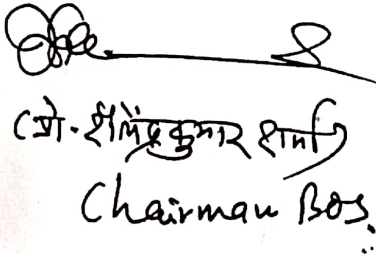 (प्रो. शैलेंद्र कुमार शर्मा)
Chairman BOS.